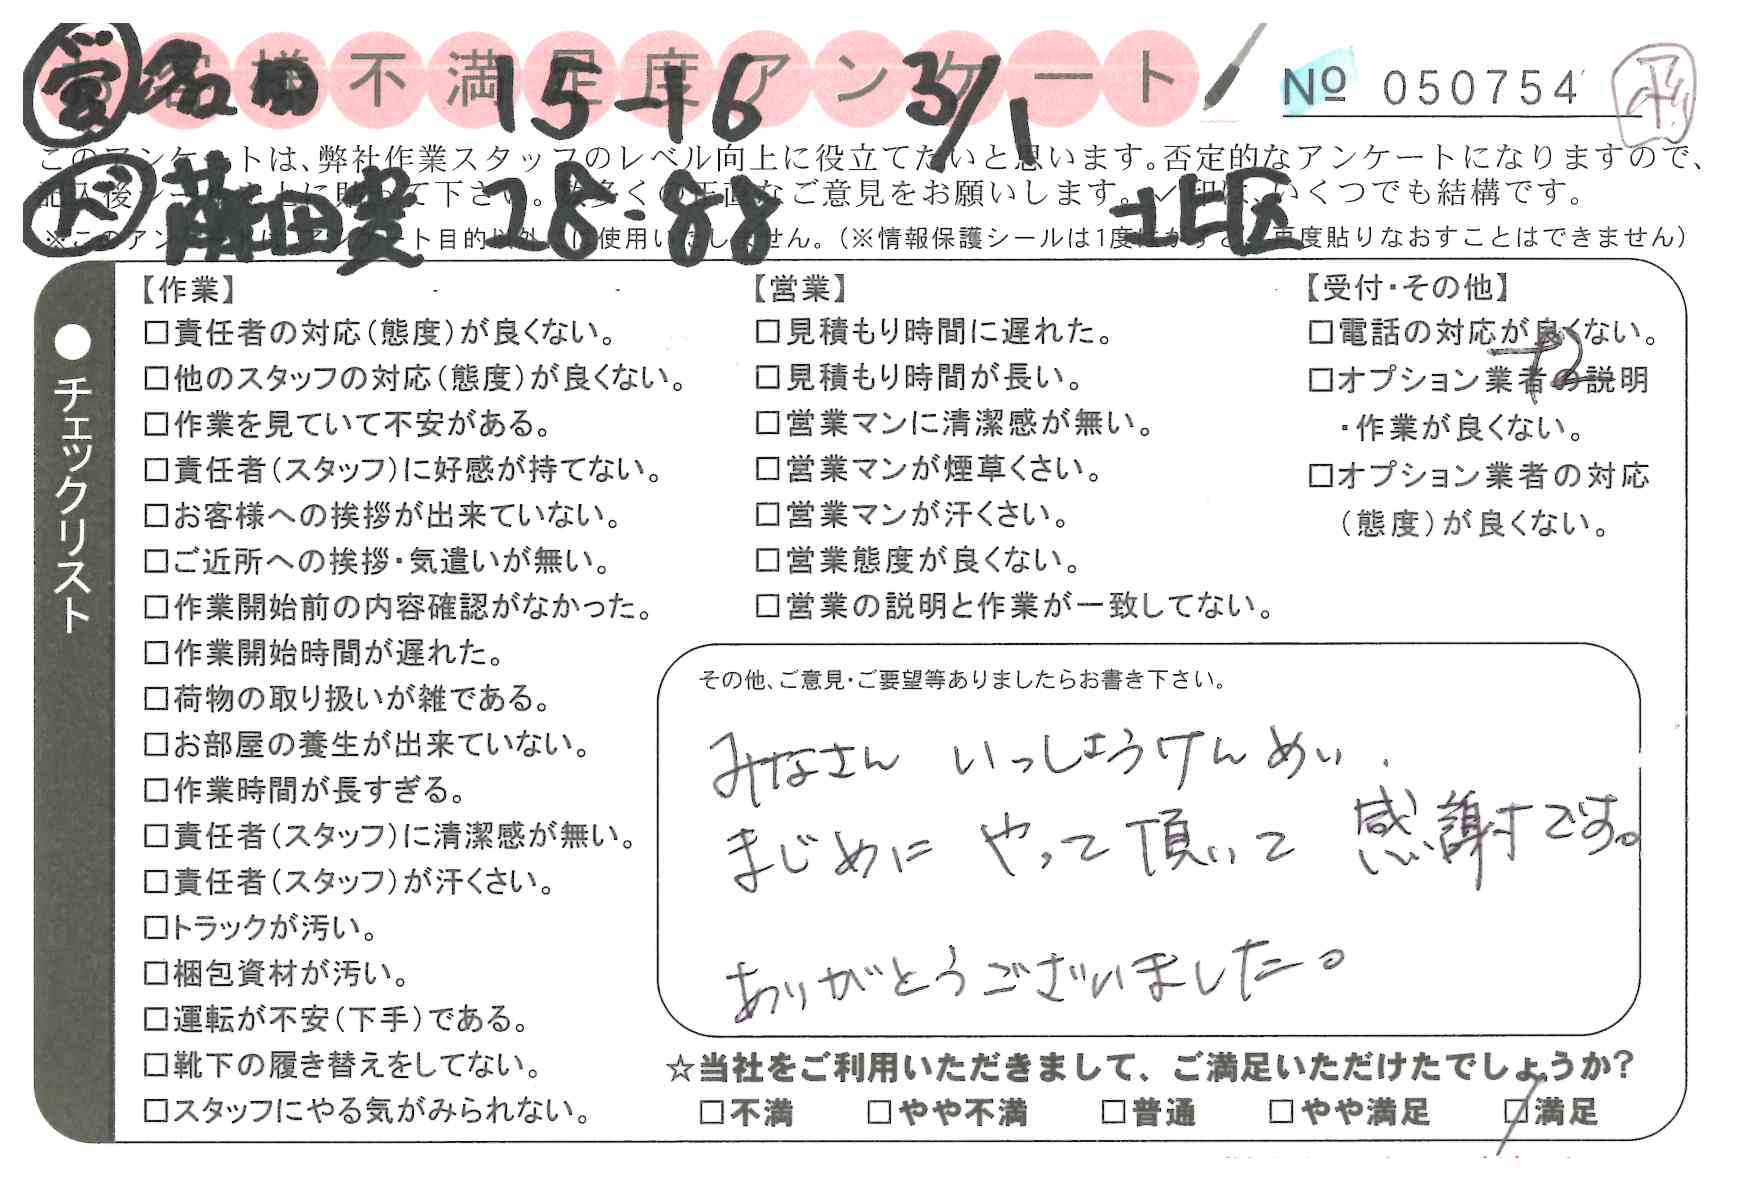 お客様不満足度アンケート
営 名田 15-16 3/1
№ 050754
このアンケートは、弊社作業スタッフのレベル向上に役立てたいと思います。否定的なアンケートになりますので、
記入後シールを上に貼って下さい。数多くの正直なご意見をお願いします。✓印は、いくつでも結構です。
田貴 28-88 北区
※このアンケートは、アンケート目的以外には使用いたしません。（※情報保護シールは1度はがすと、再度貼りなおすことはできません）
●チェックリスト
【作業】
□責任者の対応（態度）が良くない。
□他のスタッフの対応（態度）が良くない。
□作業を見ていて不安がある。
□責任者（スタッフ）に好感が持てない。
□お客様への挨拶が出来ていない。
□ご近所への挨拶・気遣いが無い。
□作業開始前の内容確認がなかった。
□作業開始時間が遅れた。
□荷物の取り扱いが雑である。
□お部屋の養生が出来ていない。
□作業時間が長すぎる。
□責任者（スタッフ）に清潔感が無い。
□責任者（スタッフ）が汗くさい。
□トラックが汚い。
□梱包資材が汚い。
□運転が不安（下手）である。
□靴下の履き替えをしてない。
□スタッフにやる気がみられない。
【営業】
□見積もり時間に遅れた。
□見積もり時間が長い。
□営業マンに清潔感が無い。
□営業マンが煙草くさい。
□営業マンが汗くさい。
□営業態度が良くない。
□営業の説明と作業が一致してない。
【受付・その他】
□電話の対応が良くない。
□オプション業者の説明
・作業が良くない。
□オプション業者の対応
（態度）が良くない。
その他、ご意見・ご要望等ありましたらお書き下さい。
みなさん いっしょうけんめい、
まじめに やって頂いて 感謝です。
ありがとうございました。
☆当社をご利用いただきまして、ご満足いただけたでしょうか？
□不満 □やや不満 □普通 □やや満足 □満足